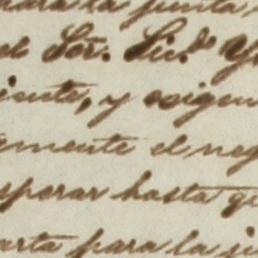 para la junta
el Sor. Lic.do
iente, y exigen
emente el neg
sperar hasta q
arta para la ju